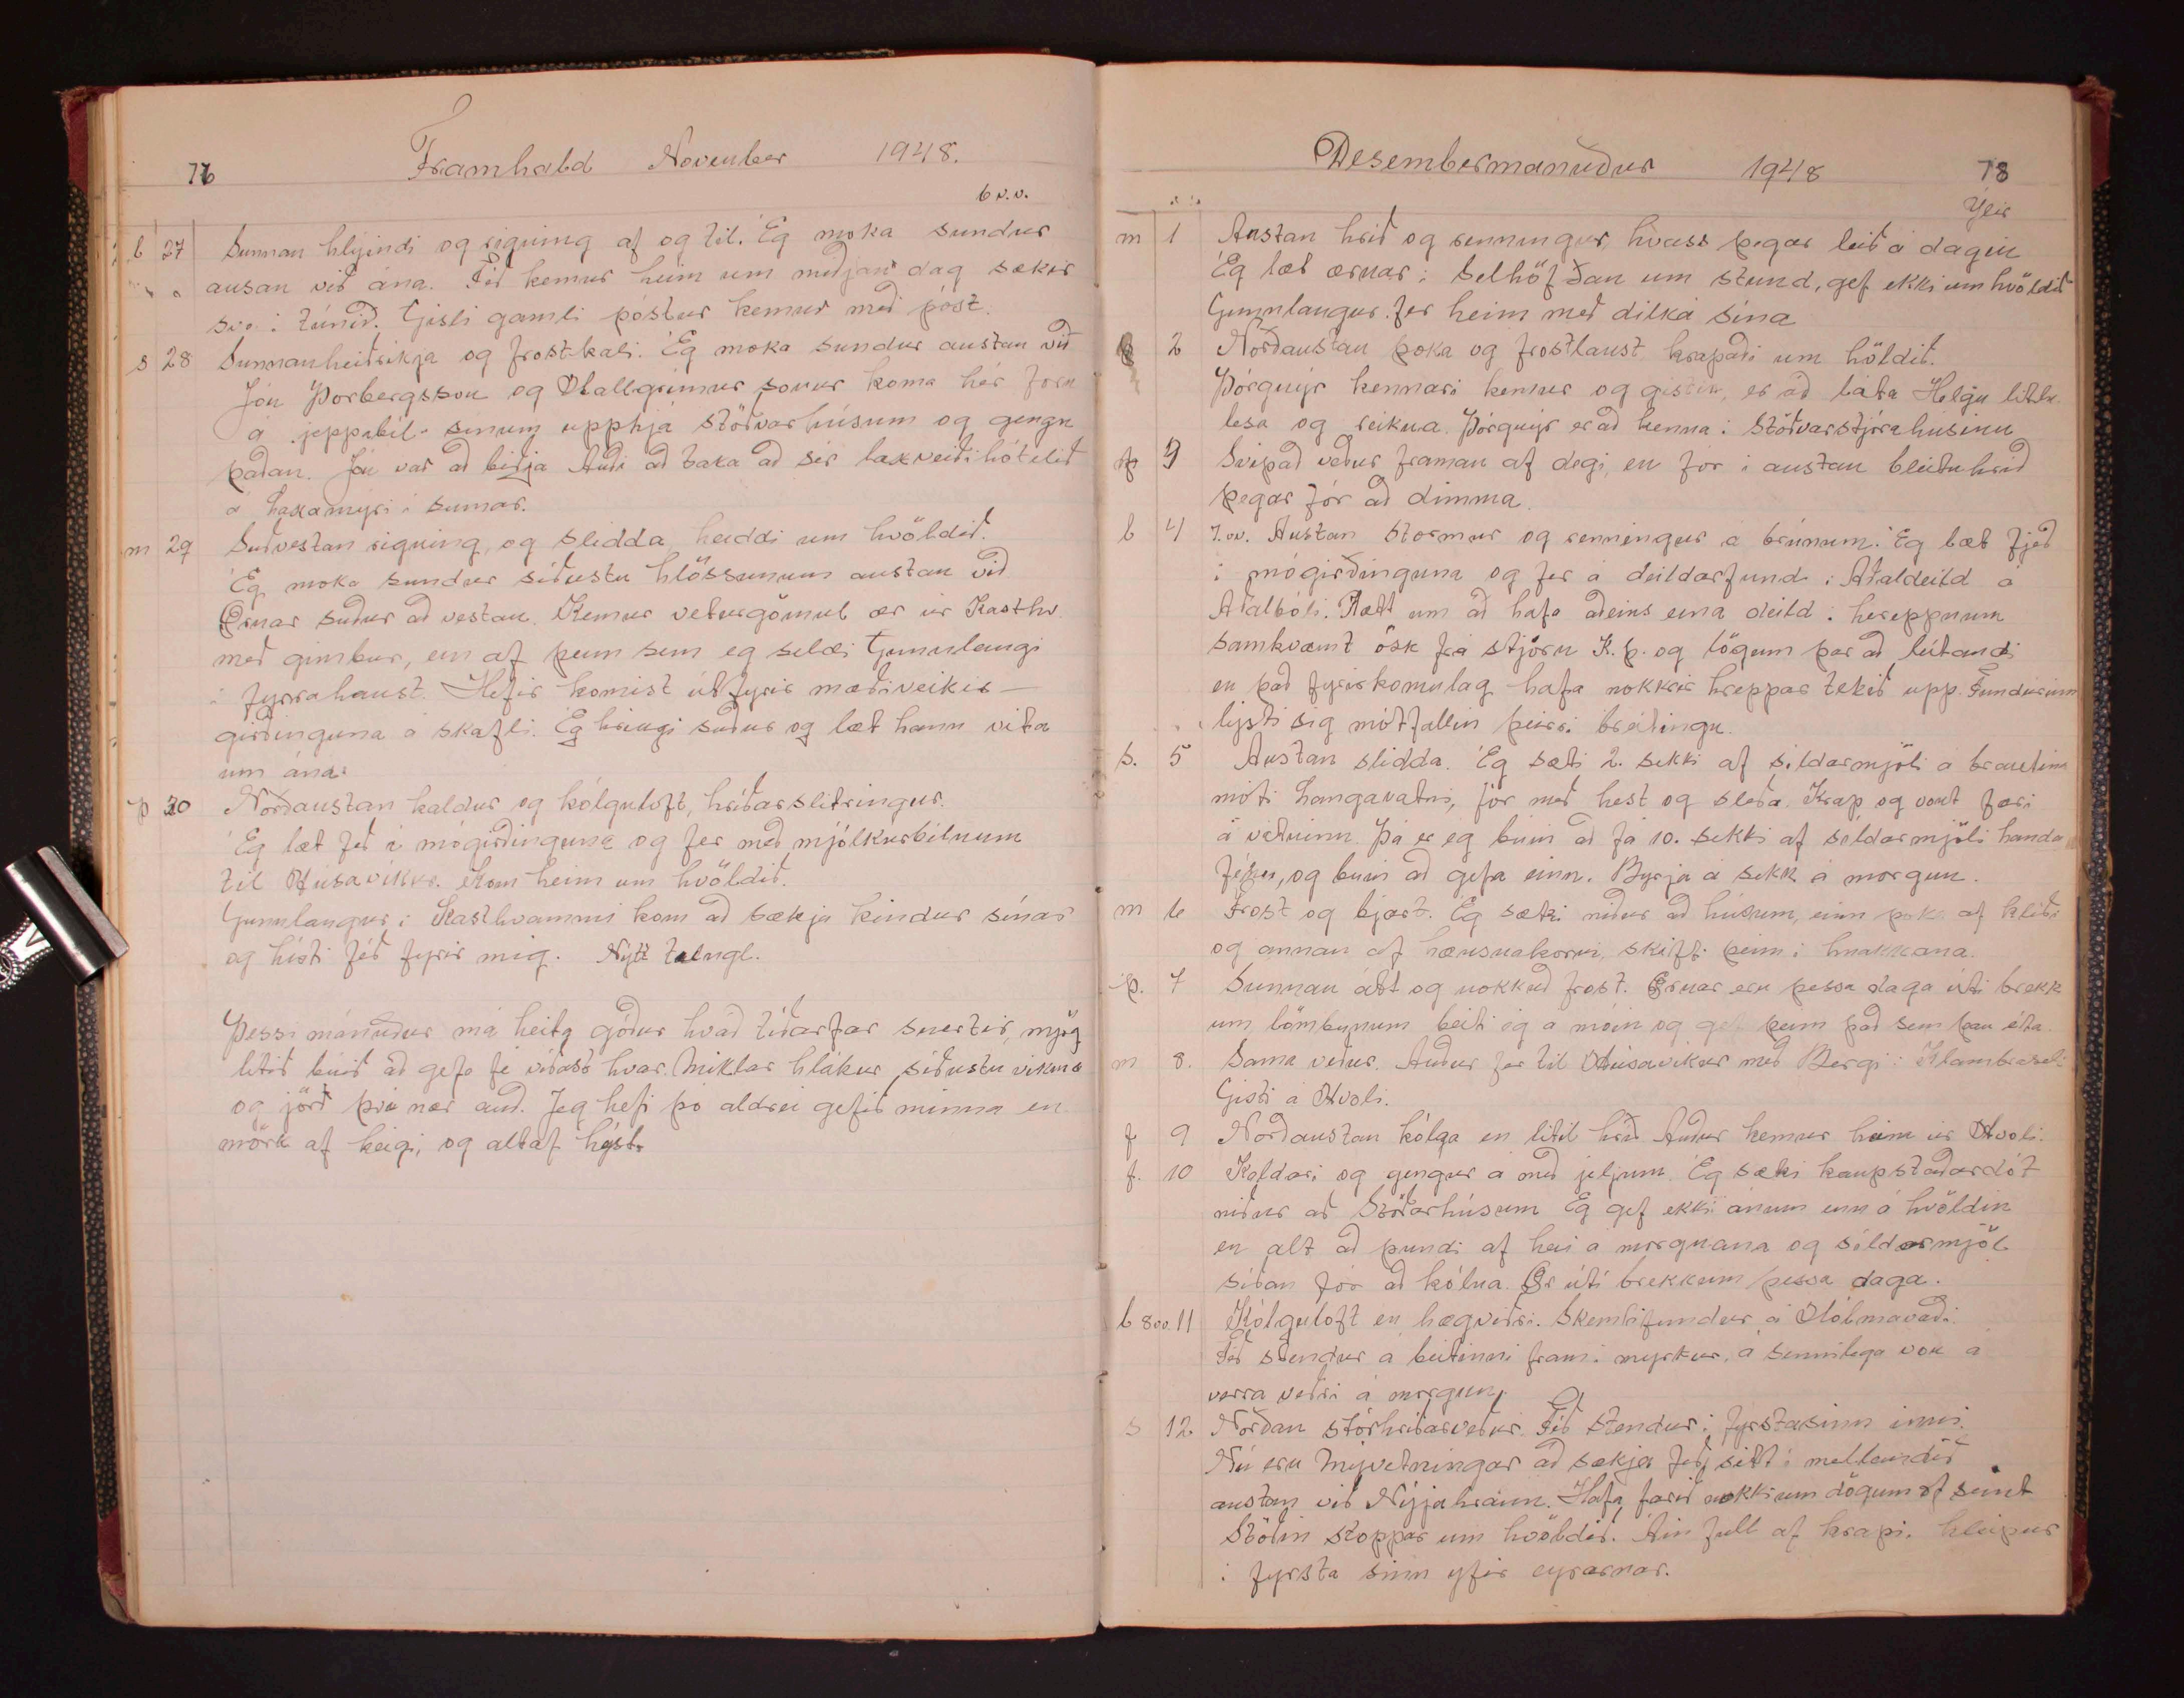 76
Framhald November 1948.
6 v.v.
l 27 Sunnan hlýindi og rigning af og til. Ég moka sundur
ausan við ána. Féð kemur heim um miðjan dag sækir
svo í túnið. Gísli gamli póstur kemur með póst.
s 28 Sunnanheiðrikja og frostkali. Ég moka sundur austan við
Jón Þorbergsson og Hallgrímur sonur koma hér foru
á jeppabíl sínum upphjá stöðvarhúsum og gengu
þaðan. Jón var að biðja Auði að taka að sér laxveiðihótelið
á Laxamýri í sumar.
m 29 Suðvestan rigning, og slidda heiddi um kvöldið.
Ég moka sundur síðustu hlössunum austan við
Ærnar suður að vestan. Kemur veturgömul ær úr Kasthv.
með gimbur, ein af þeim sem eg seldi Gunnlaugi
í fyrrahaust. Hefir komist út fyrir mæðiveikis-
girðinguna á skafli. Ég hringi suður og læt hann vita
um ána.
þ 30 Norðaustan kaldur og kólguloft, hríðarslitringur.
Ég læt féð í mógirðinguna og fer með mjólkurbílnum
til Húsavíkur. Kom heim um kvöldið.
Gunnlaugur í Kasthvammi kom að sækja kindur sínar
og hísti féð fyrir mig. Nýtt tungl.
Þessi mánuður má heita góður hvað tíðarfar snertir, mjög
lítið búið að gefa fé víðast hvar. Miklar hlákur síðustu vikuna
og jörð því nær auð. Jeg hefi þó aldrei gefið minna en
mörk af heigi, og altaf hýst.
Desembermánuður 1948 78
Ýlir
m 1 Austan hríð og renningur, hvass þegar leið á dagin
Ég læt ærnar í Selhöfðan um stund, gef ekki um kvöldið
Gunnlaugur fer heim með dilka sína
2 Norðaustan þoka og frostlaust krapaði um köldið.
Þórgnýr kennari kemur og gistir, er að láta Helgu litlu
lesa og reikna. Þórgnýr er að kenna í Stöðvarstjórahúsinu
3 Svipað veður framan af degi, en for í austan bleituhríð
þegar fór að dimma.
l 4 7.vv. Austan stormur og renningur á brúnum. Ég læt fjeð
í mógirðinguna og fer á deildarfund í Aðaldeild á
Aðalbóli. Rætt um að hafa aðeins eina deild í hreppnum
samkvæmt ósk frá stjórn K.Þ. og lögum þar að lútandi
en það fyrirkomulag hafa nokkrir hreppar tekið upp. Fundurinn
lýsti sig mótfallin þeirri breitingu.
s. 5 Austan slidda. Ég sæti 2. sekki af síldarmjöli á brautina
móti Langavatni, fór með hest og sleða. Krap og vont færi
á vatninu. Þá er eg búin að fá 10. sekki af síldarmjöli handa
fénu, og búin að gefa einn. Byrja á sekk á morgun.
m 6 Frost og bjart. Eg sæki niður að húsum, einn poka af klíði
og annan af hænsnakorni, skifti þeim í hnakkana.
þ. 7 Sunnan átt og nokkuð frost. Ærnar eru þessa daga úti brekk
um, lömbunum beiti ég á móin og gef þeim það sem þau éta.
m 8. Sama veður. Auður fer til Húsavíkur með Bergi í Klambraseli
Gisti á Hvoli.
f 9 Norðaustan kólga en lítil hríð Auður kemur heim úr Hvoli.
f. 10 Kaldari og gengur á með jeljum. Ég sæki kaupstaðardót
niður að Stöðarhúsum Ég gef ekki ánum enn á kvöldin
en alt að pundi af heii á morgnana og síldarmjöl
síðan fór að kólna. Ær úti brekkum þessa daga.
l 8vv. 11 Kólguloft en hægviðri. Skemtifundur á Hólmavaði.
Féð stendur á beitinni fram í myrkur, á sennilega von á
verra veðri á morgun.
s 12 Norðan stórhríðarveður. Féð stendur í fyrstasinn inni.
Nú eru Mývetningar að sækja féð sitt í mellandið
austan við Nýjahraun. Hafa farið nokkrum dögum of seint
Stöðin stoppar um kvöldið. Áin full af krapi. hleipur
í fyrsta sinn yfir eyrarnar.